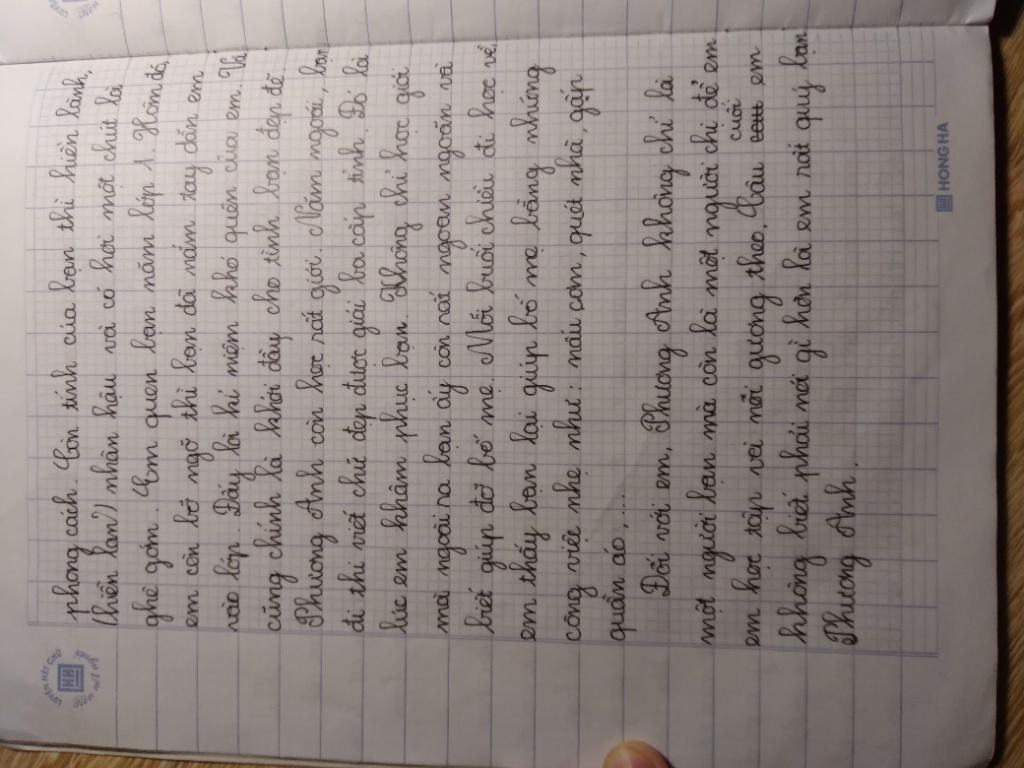 phong cách. Còn tính của bạn thì hiền lành,
(hiền lắm!) nhân hậu và có hơi một chút là
ghê gớm. Em quen bạn năm lớp 1. Hôm đó,
em còn bỡ ngỡ thì bạn đã nắm tay dẫn em
vào lớp. Đấy là kỉ niệm khó quên của em. Và
cũng chính là khởi đầy cho tình bạn đẹp đẽ.
Phương Anh còn học rất giỏi. Năm ngoái, bạn
đi thi viết chữ đẹp được giải ba cấp tỉnh. Đó là
lúc em khâm phục bạn. Không chỉ học giỏi
mà ngoài ra bạn ấy còn rất ngoan ngoãn và
biết giúp đỡ bố mẹ. Mỗi buổi chiều đi học về,
em thấy bạn lại giúp bố mẹ bằng những
công việc nhẹ như: nấu cơm, quét nhà, gấp
quần áo,....
Đối với em, Phương Anh không chỉ là
một người bạn mà còn là một người chị để em
em học tập và noi gương theo. Câu cuối em
không biết phải nói gì hơn là em rất quý bạn
Phương Anh.
HONG HA
LUYỆN NÉT CHỮ
HH